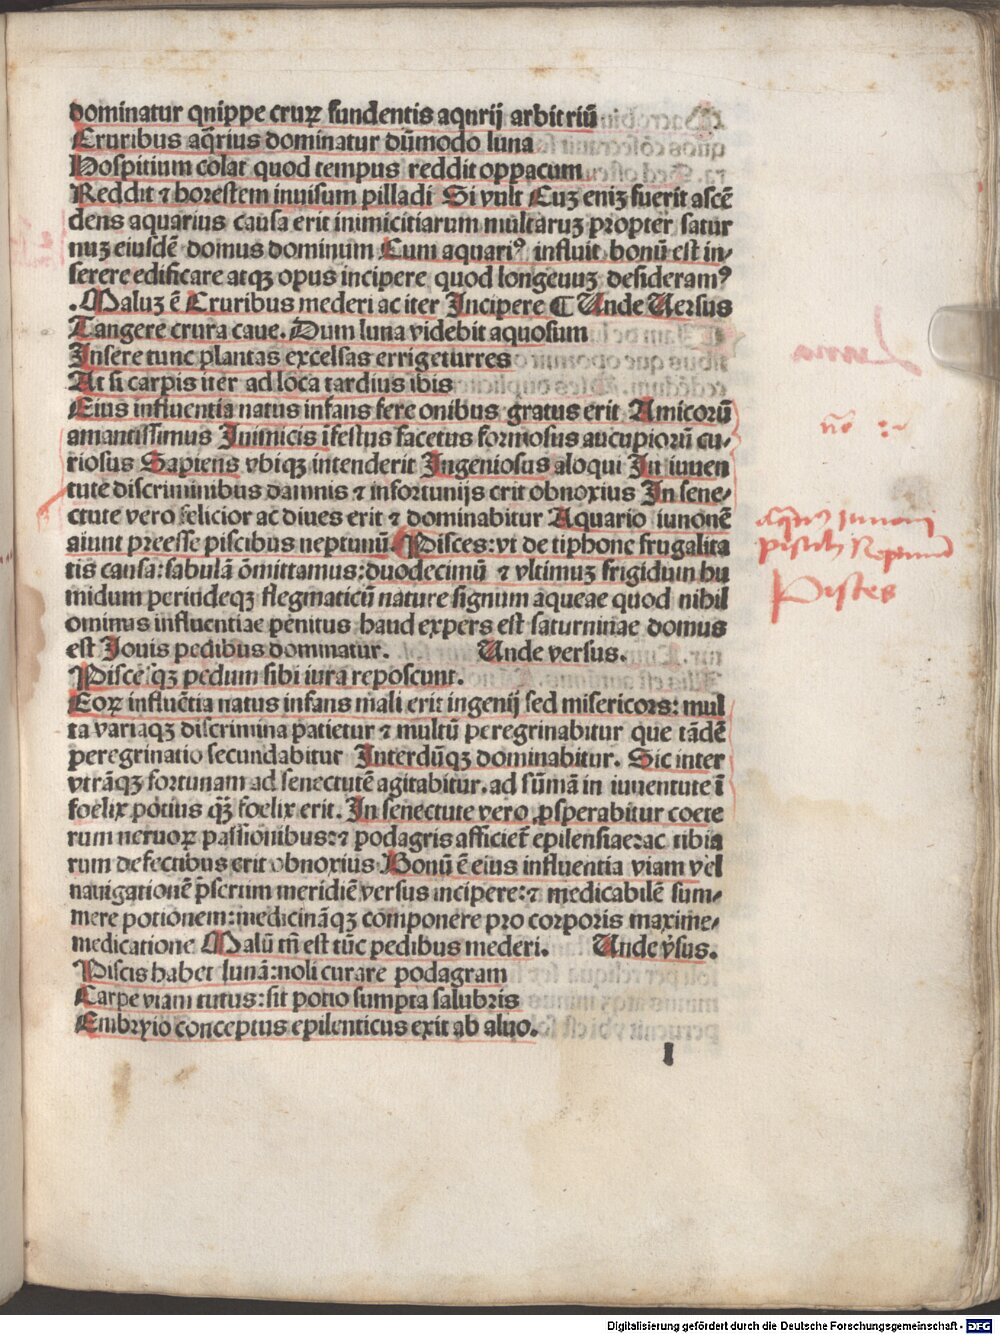 dominatur qnippe cruꝝ fundentis aqurij arbitriū
Cruribus aq̄rius dominatur dūmodo luna
Hospitium colat quod tempus reddit oppacum
Reddit ⁊ horestem inuisum pilladi Si vult Cuꝫ eniꝫ fuerit ascē
dens aquarius causa erit inimicitiarum multaruꝫ propter satur
nuꝫ eiusdē domus dominum Cum aquariꝰ influit bonū est in-
serere edificare atqꝫ opus incipere quod longeuuꝫ desideramꝰ
.Maluꝫ ē Cruribus mederi ac iter Incipere ¶ Unde Uersus
Tangere crura caue. Dum luna videbit aquosum
Insere tunc plantas excelsas errigeturres
At si carpis iter ad loca tardius ibis
Eius influentia natus infans fere onibus gratus erit Amicorū
amantissimus Inimicis ifestus facetus formosus aucupiorū cu-
riosus Sapiens vbiqꝫ intenderit Ingeniosus aloqui In iuuen
tute discriminibus damnis ⁊ infortunijs erit obnoxius In sene-
ctute vero felicior ac diues erit ⁊ dominabitur Aquario iunonē
aiunt preesse piscibus neptunū. Pisces: vt de tiphone frugalita
tis causa: fabulā ōmittamus: duodecimū ⁊ vltimuꝫ frigidum hu
midum perindeqꝫ flegmaticū nature signum aqueae quod nihil
ominus influentiae penitus haud expers est saturninae domus
est Iouis pedibus dominatur. Unde versus.
Pisce qꝫ pedum sibi iura reposcunt.
Eoꝝ influētia natus infans mali erit ingenij sed misericors: mul
ta variaqꝫ discrimina patietur ⁊ multū peregrinabitur que tādē
peregrinatio secundabitur Interdūqꝫ dominabitur. Sic inter
vtrāqꝫ fortunam ad senectutē agitabitur. ad sūmā in iuuentute ī
foelix potius qꝫ̄ foelix erit. In senectute vero ꝓsperabitur coete
rum neruoꝝ passionibus: ⁊ podagris afficiet̄ epilensiae: ac tibia
rum defectibus erit obnoxius Bonū ē eius influentia viam vel
nauigationē p̄serum meridiē versus incipere: ⁊ medicabilē sum-
mere potionem: medicināqꝫ componere pro corporis maxime-
medicatione Malū tn̄ est tūc pedibus mederi. Unde v̓sus.
Piscis habet lunā: noli curare podagram
Carpe viam tutus: sit potio sumpta salubris
Embryio conceptus epilenticus exit ab aluo.
I
Luna
Pisces
Digitalisierung gefördert durch die Deutsche Forschungsgemeinschaft - DFG